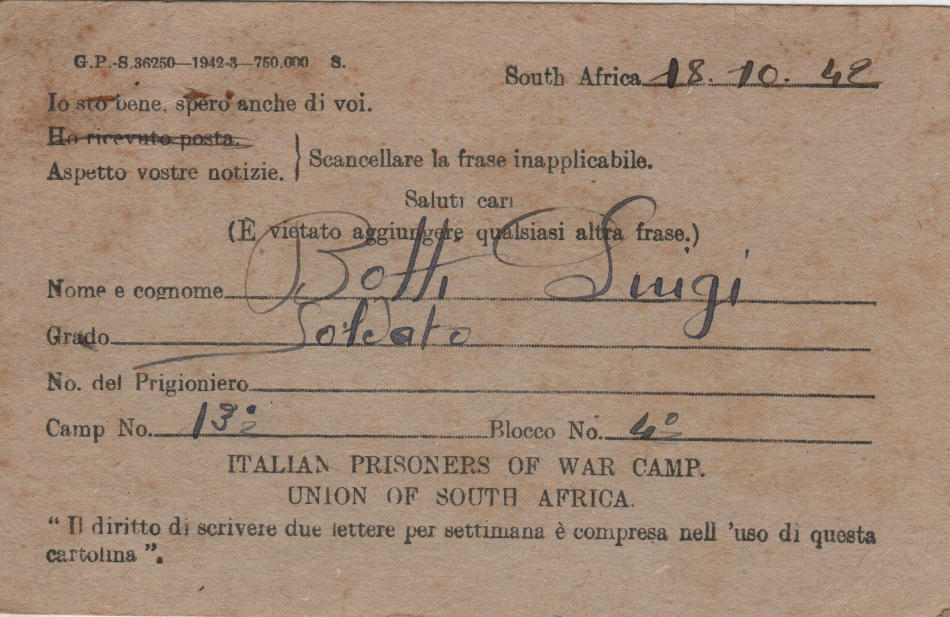 G.P.-S.36250—1942-3—750,000 S.
South Africa 18. 10. 42
Io sto bene, spero anche di voi.
Ho ricevuto posta.
Scancellare la frase inapplicabile.
Aspetto vostre notizie.
Saluti cari
(È vietato aggiungere qualsiasi altra frase.)
Nome e cognome Botti Luigi
Grado Soldato
No. del Prigioniero
Camp No. 13º Blocco No. 4º
ITALIAN PRISONERS OF WAR CAMP.
UNION OF SOUTH AFRICA.
“ Il diritto di scrivere due lettere per settimana è compresa nell 'uso di questa
cartolina ”.